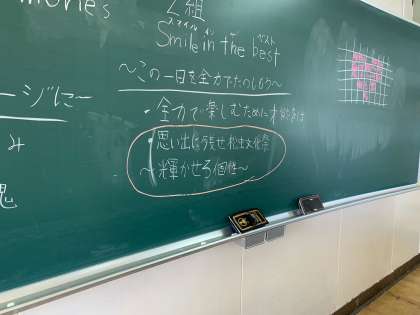 mories
2組
スマイル イン ベスト
Smile in the best
～この一日を全力でたのしもう～
ージに－
・全力で楽しむために
み
思い出に残せ松虫文化祭
～輝かせろ個性～
塊